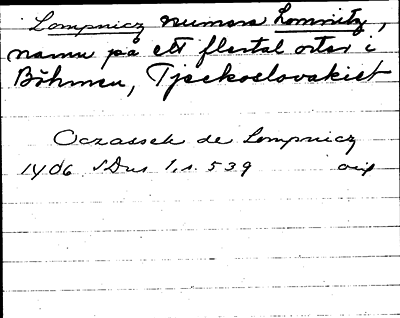 Lompnicz numera Lomnitz,
namn på ett flertal orter i
Böhmen, Tjeckoslovakiet
Oczassek de Lompnicz
1406 SDns 1, s. 539